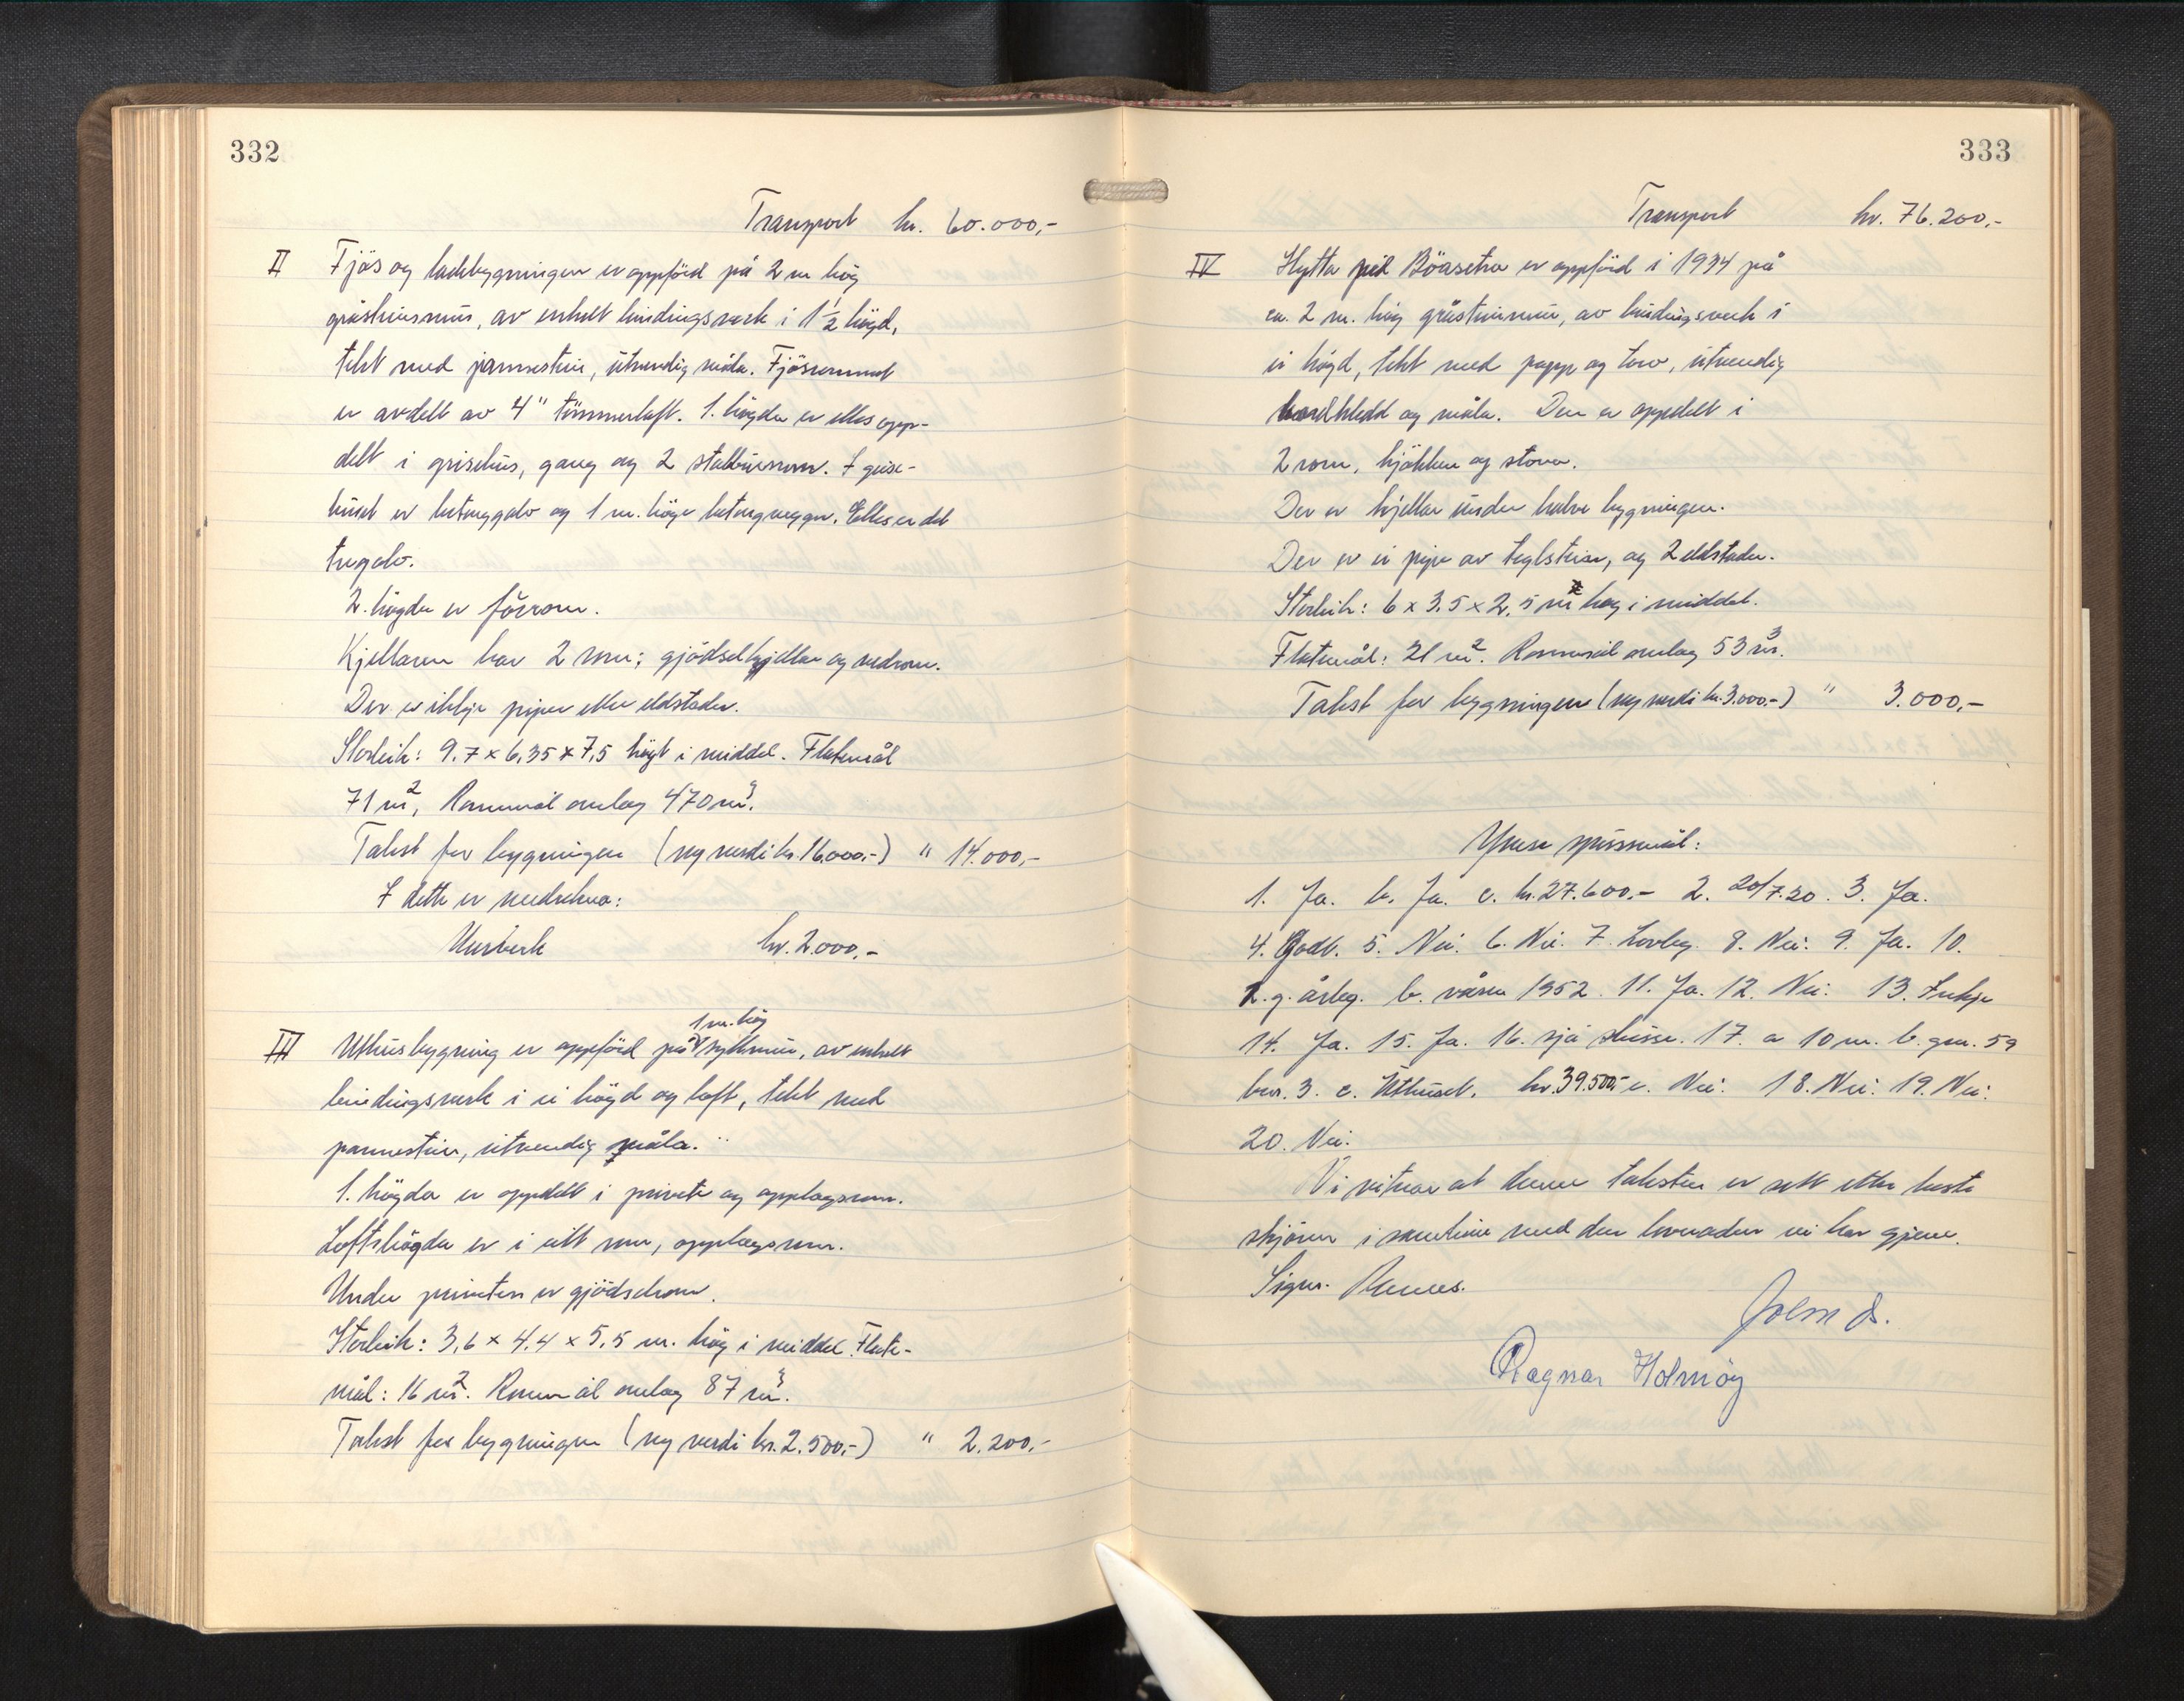 332
Transport kr. 60.000,-
II Fjös og ladebygningen er oppförd på 2 m hög
gråsteinsmur, av enkelt bindingsverk i 1 1/2 högd,
tekt med pannestein, utvendig måla. Fjösrommet
er avdelt av 4" tömmerloft. 1. högda er elles opp-
delt i grisehus, gang og 2 stallbusrom. I grise-
huset er betonggolv og 1 m. höge betongvegger. Elles er det
tregolv.
2. högda er fôrrom.
Kjellaren har 2 rom; gjödselkjellar og vedrom.
Der er ikkje piper eller eldstader.
Storleik: 9.7 x 6,35 x 7,5 högt i middel. Flatemål
71 m2, Rommål omlag 470 m3.
Takst for bygningen (ny verdi kr. 16.000,-) " 14.000,-
I dette er medrekna:
Murverk kr. 2.000,-
III Uthusbygning er oppförd på 1 m. hög syllmur, av enkelt
bindingsverk i ei högd og loft, tekt med
pannestein, utvendig måla.
1. högda er oppdelt i privet og opplagsrom.
Loftshögda er i eitt rom, opplagsrom.
Under priveten er gjödselrom.
Storleik: 3,6 x 4.4 x 5,5 m. hög i middel. Flate-
mål: 16 m2. Rommål omlag 87 m3.
Takst for bygningen (ny verdi kr. 2.500,-) " 2.200,-
333
Transport kr. 76.200,-
IV Hytta på Böasetra er oppförd i 1934 på
ca. 2 m. hög gråsteinmur, av bindingsverk i
ei högd, tekt med papp og torv, utvendig
bordkledd og måla. Den er oppdelt i
2 rom, kjökken og stova.
Der er kjellar under halve bygningen.
Der er ei pipe av teglstein, og 2 eldstader.
Storleik: 6 x 3.5 x 2,5 m hög i middel.
Flatemål: 21 m2. Rommål omlag 53 m3.
Takst for bygningen (ny verdi kr. 3.000.-) " 3.000,-
Ymse spörsmål:
1. Ja. b. Ja. c. kr. 27.600.- 2. 20/7.20. 3. Ja.
4. Godt. 5. Nei. 6. Nei. 7. Lovleg. 8. Nei. 9. Ja. 10.
2.g. årleg. b. våren 1952. 11. Ja. 12. Nei. 13. Inkje
14. Ja. 15. Ja. 16. sjå skisse. 17. a 10 m. b. gnr. 59
bnr. 3. c. Uthuset. kr. 39.500.- e. Nei. 18. Nei. 19. Nei.
20. Nei.
Vi vitnar at denne taksten er sett etter beste
skjönn i samhöve med den lovnaden vi har gjeve.
Sign. Remes.
Ragnar Holmöy